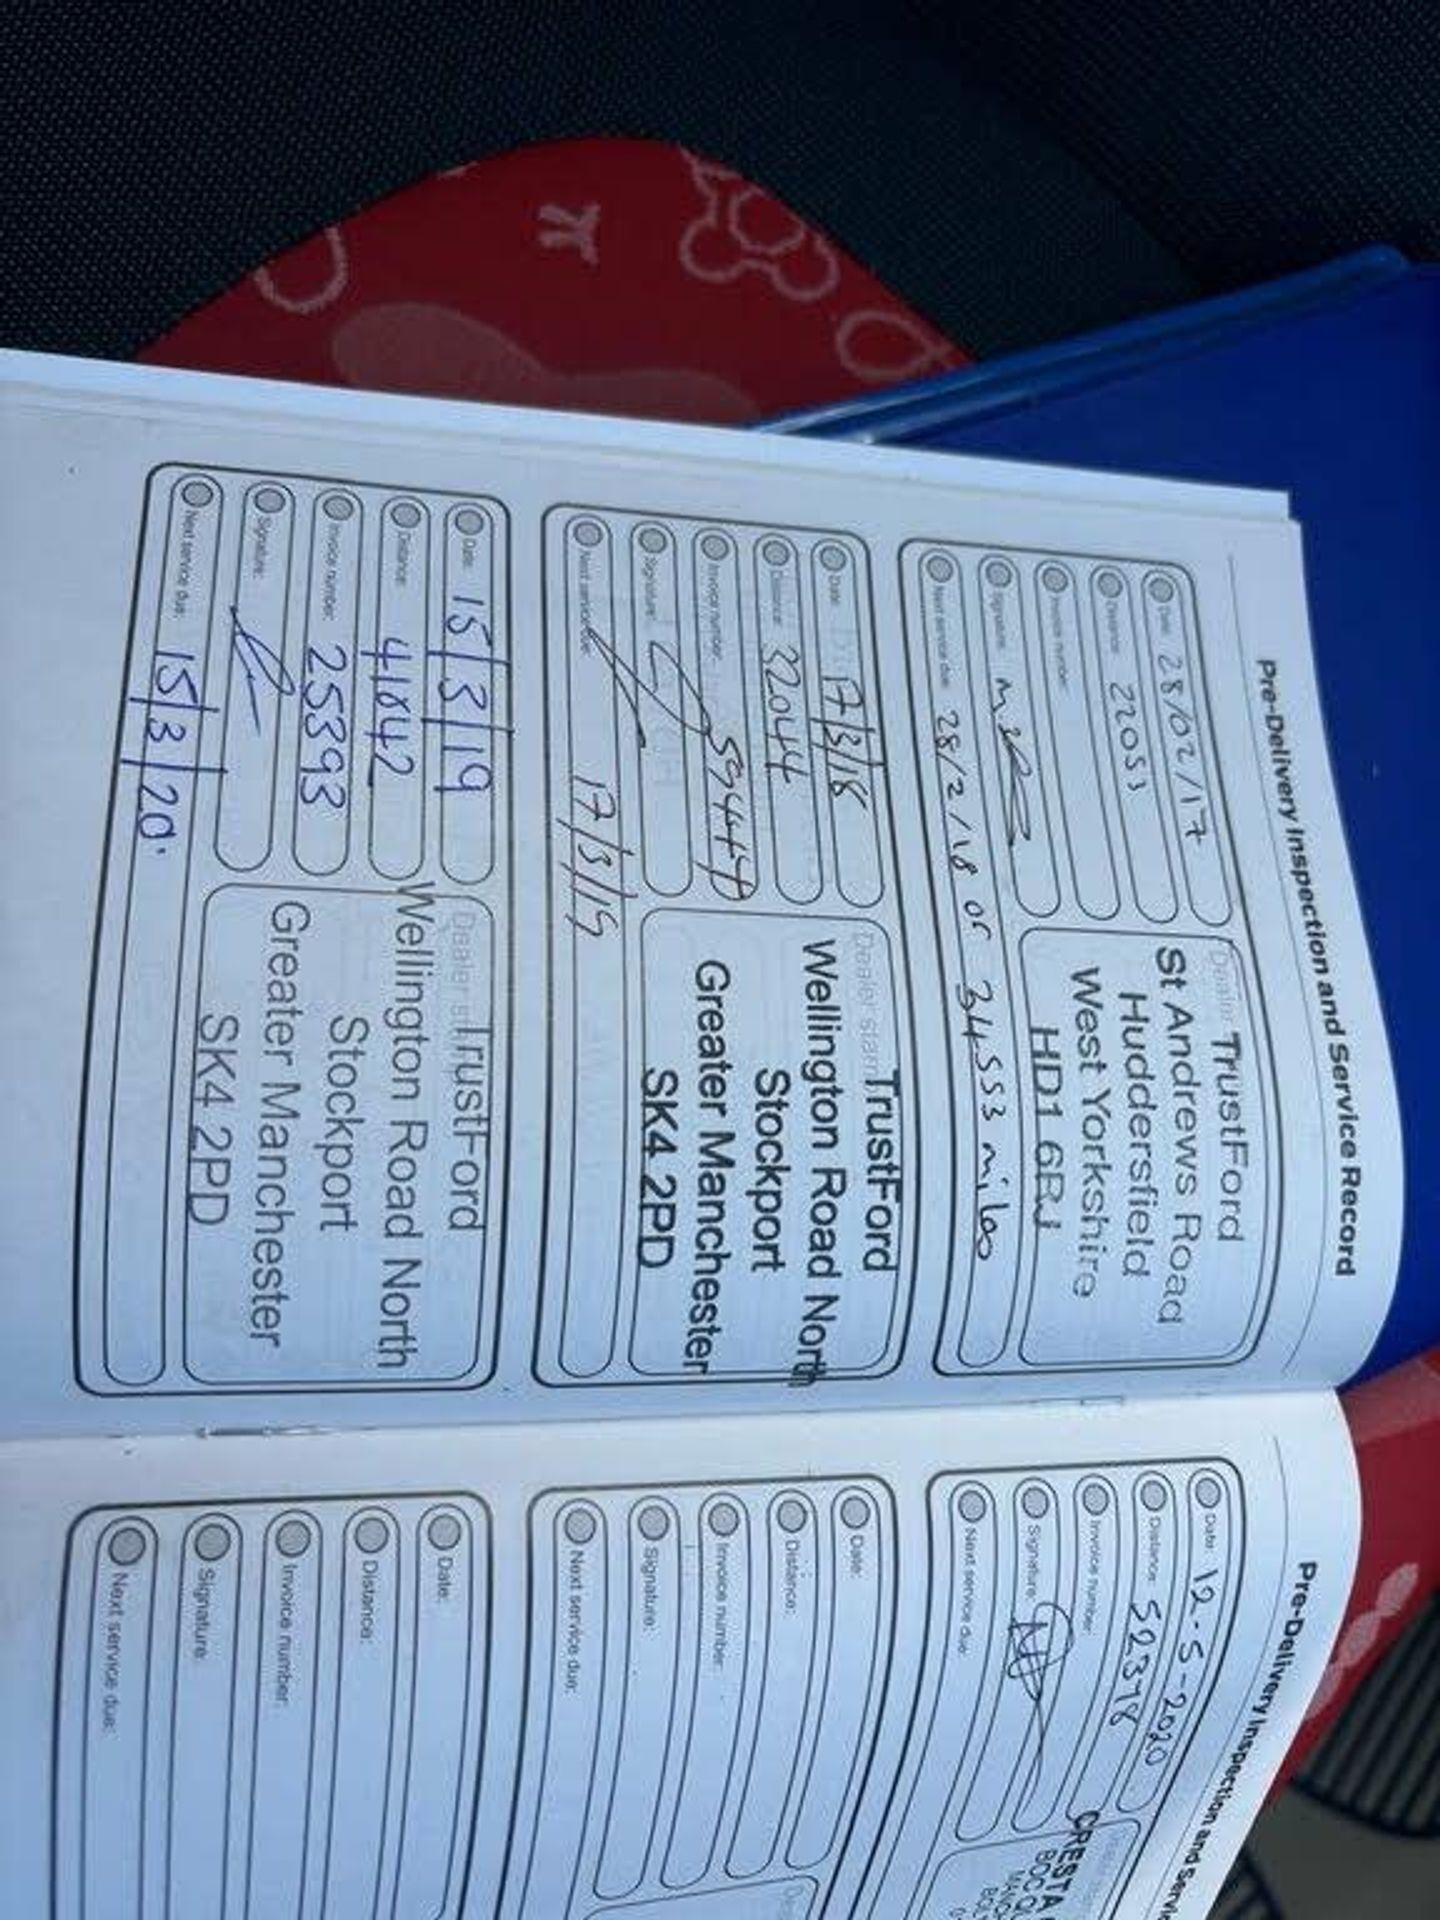 Pre-Delivery Inspection and Service Record
Date: 28/02/17
Distance: 22053
Invoice number:
Signature:
Next service due: 28/2/18 or 34553 miles
TrustFord
St Andrews Road
Huddersfield
West Yorkshire
HD1 6RJ
Date: 17/3/18
Distance: 32044
Invoice number:
Signature:
Next service due: 17/3/19
Dealer stamp
TrustFord
Wellington Road North
Stockport
Greater Manchester
SK4 2PD
Date: 15/3/19
Distance: 41842
Invoice number: 25393
Signature:
Next service due: 15/3/20
TrustFord
Wellington Road North
Stockport
Greater Manchester
SK4 2PD
Pre-Delivery Inspection and
Date: 12-5-2020
Distance:
Invoice number:
Signature:
Next service due:
CRESTA
Date:
Distance:
Invoice number:
Signature:
Next service due:
Date:
Distance:
Invoice number:
Signature:
Next service due: